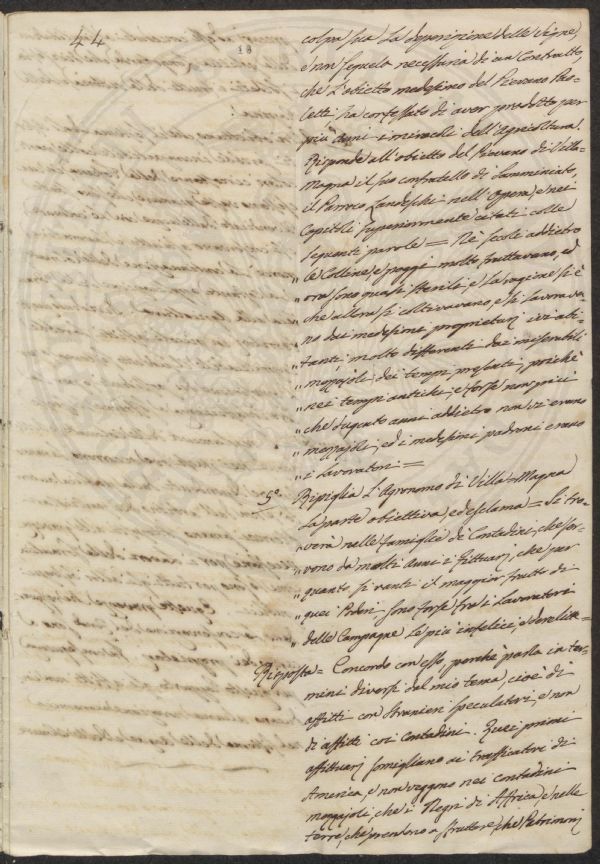 44
18
colpa sua la deperizione delle Vigne,
e non sequela necessaria di un Contratto,
che l'obietto medesimo del Pievano Pao-
letti ha confessato di aver prodotto per
più anni i miracoli dell'Agricoltura.
Risponde all'obietto del Pievano di Villa-
Magna il suo confratello di Samminiato,
il Parroco Landeschi nell'Opera, e nei
Capitoli superiormente citati colle
seguenti parole = Ne' secoli addietro
le Colline, e poggi molto fruttavano, ed
„ ora sono quasi sterili, e la ragione si è
„ che allora si coltivavano, e si lavorava-
„ no dai medesimi proprietarj ivi abi-
„ tanti, molto differenti dai miserabili
„ mezzajoli dei tempi presenti, poichè
„ nei tempi antichi, e forse non più
„ che dugento anni addietro non vi erano
„ mezzajoli, ed i medesimi padroni erano
„ i Lavoratori =
5.° Ripiglia l'Agronomo di Villa-Magna
la parte obiettiva, ed esclama = Si tro-
„ verà nelle famiglie de Contadini, che ser-
„ vono da molti anni i fittuarj, che per
„ quanto si vanti il maggior frutto di
„ quei Poderi sono forse tra i Lavoratori
„ delle Campagne le più infelici, e derelitte =
Risposta = Concordo con esso, perchè parla in ter-
mini diversi dal mio tema, cioè di
affitti con stranieri speculatori, e non
di affitti coi Contadini. Quei primi
affittuarj somigliano ai trafficatori di
America, e non veggono nei contadini
mezzajoli, che i Negri di Affrica, e nelle
terre, che prendono a sfruttare, che Patrimonj